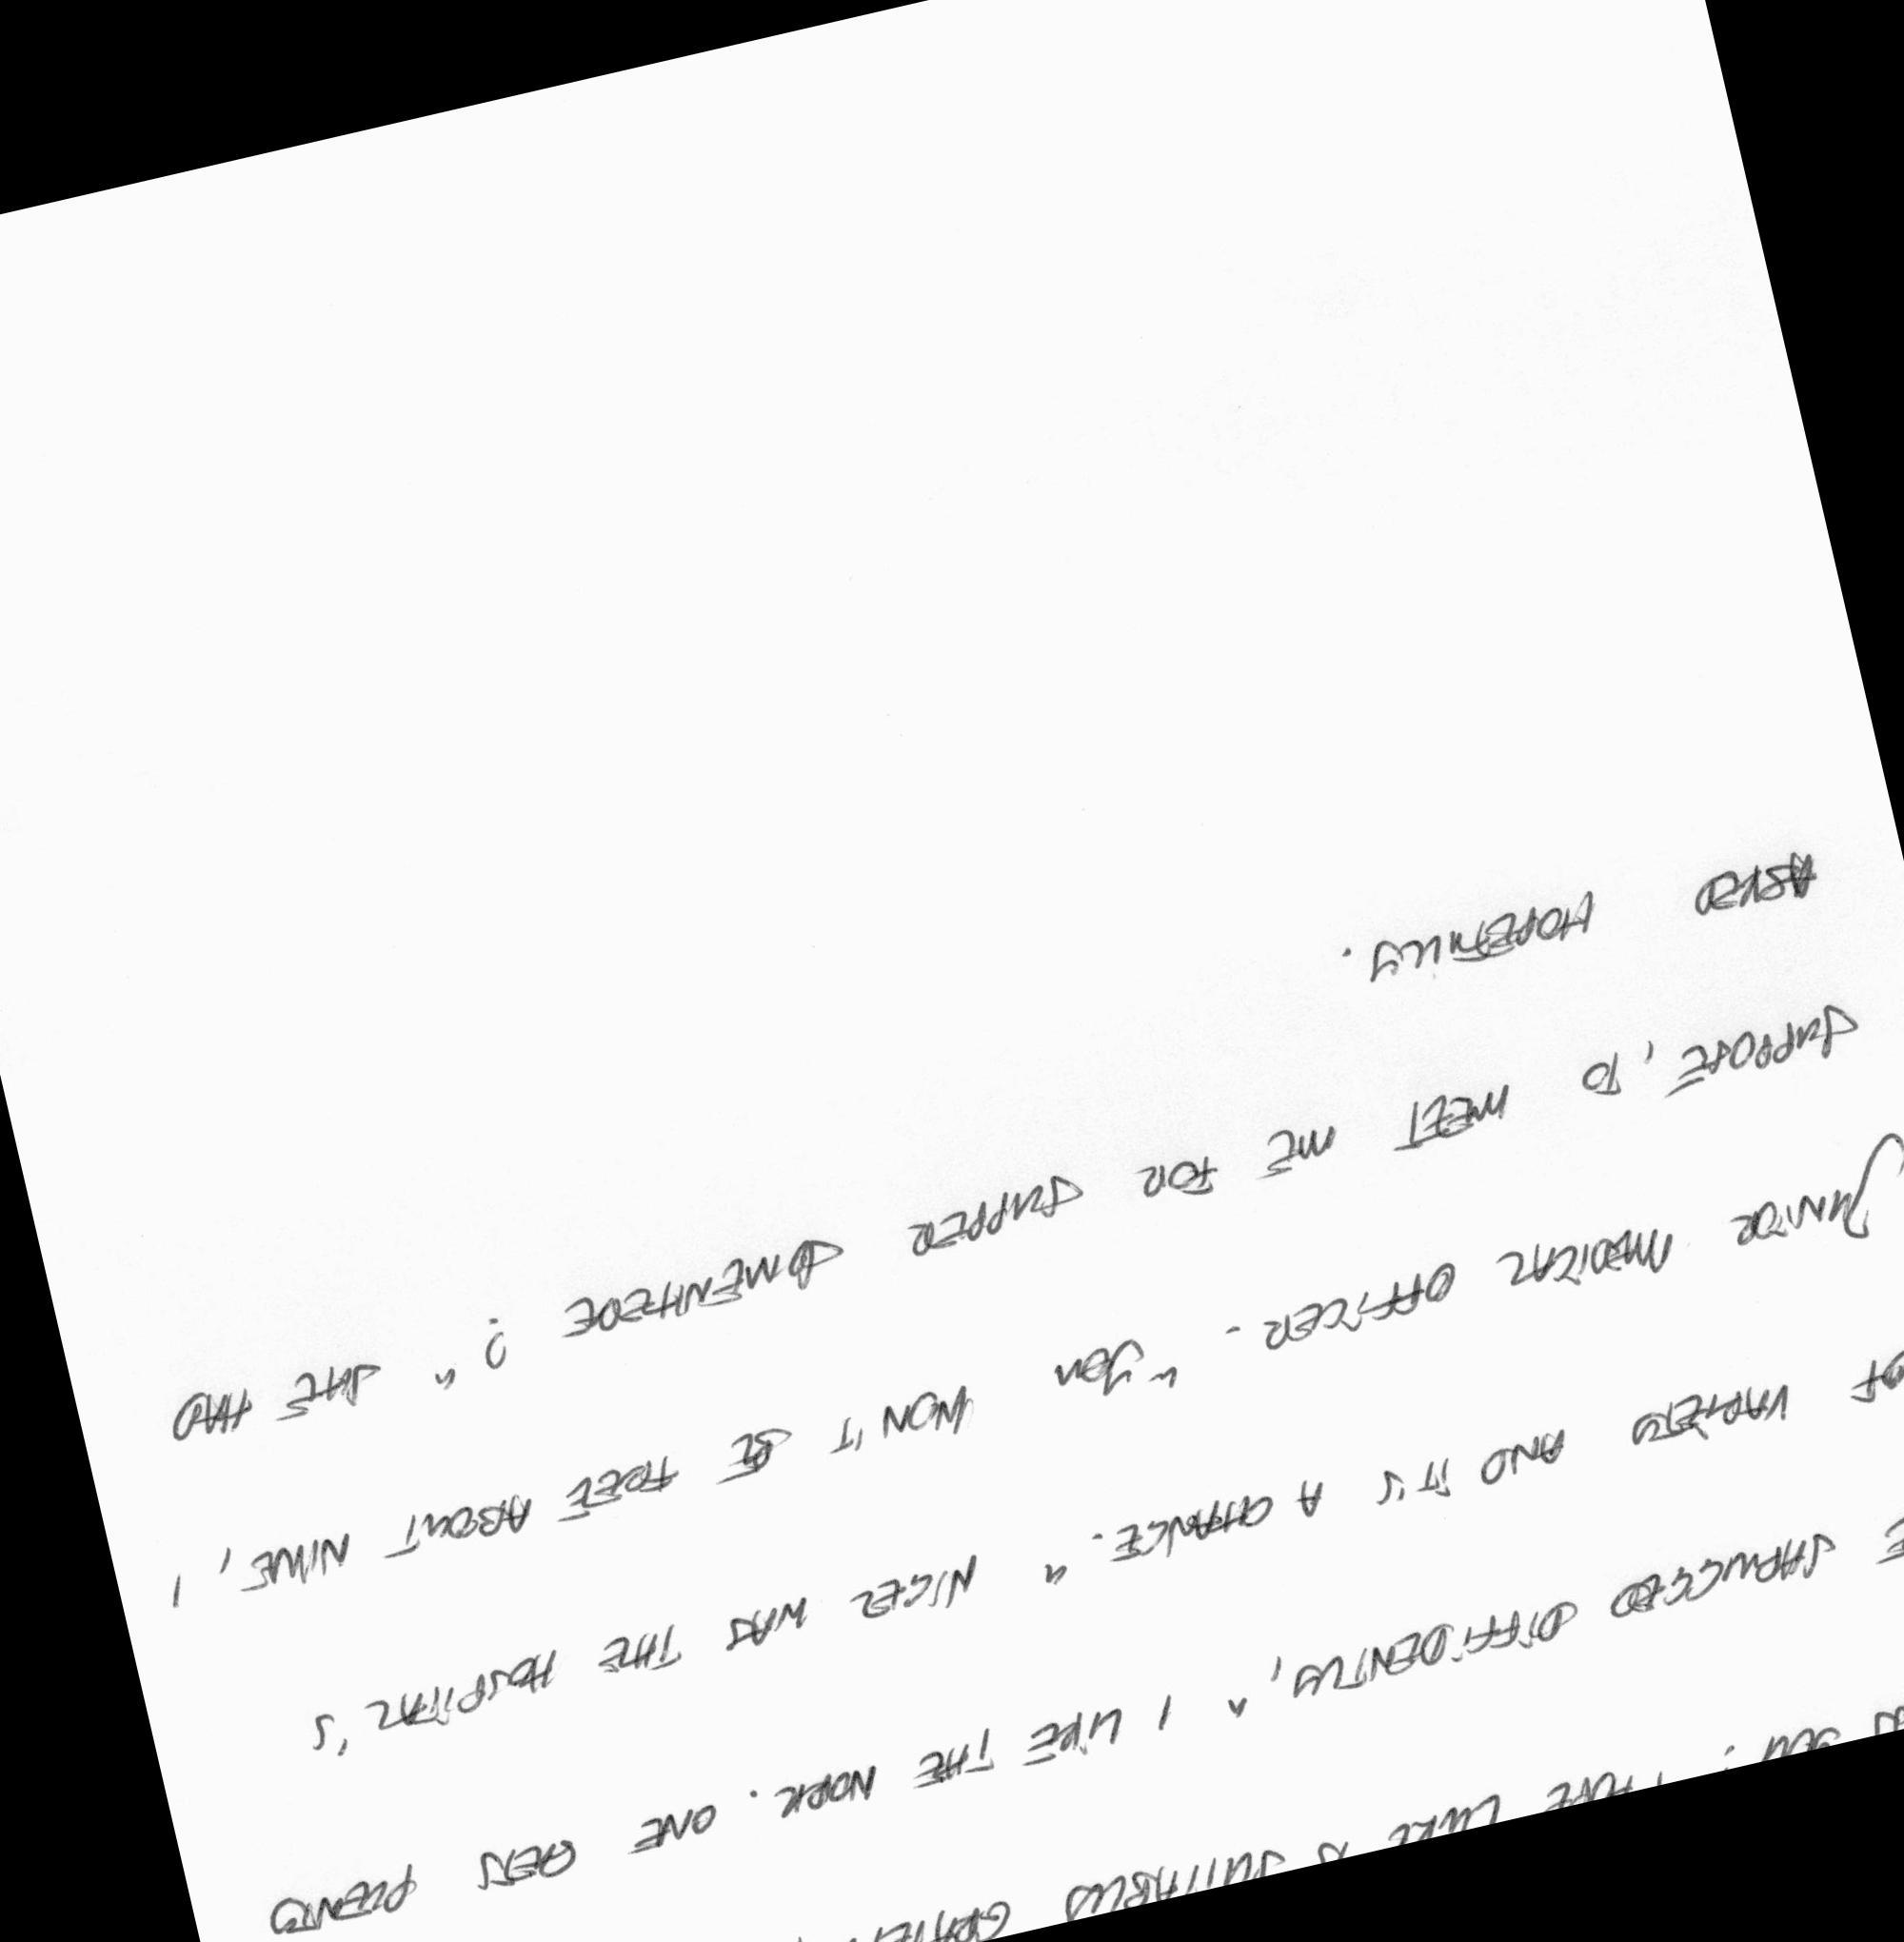 YOU ; I HOPE LUKE IS SUITABLY
SHRUGGED DIFFIDENTLY, " I LIKE THE WORK. ONE GETS PLENTY
OF VARIETY AND IT'S A CHANGE. " NIGEL WAS THE HOSPITAL'S
JUNIOR MEDICAL OFFICER. " YOU WON'T BE FREE ABOUT NINE, I
SUPPOSE, TO MEET ME FOR SUPPER SOMEWHERE ? " SHE HAD
ASKED HOPEFULLY.